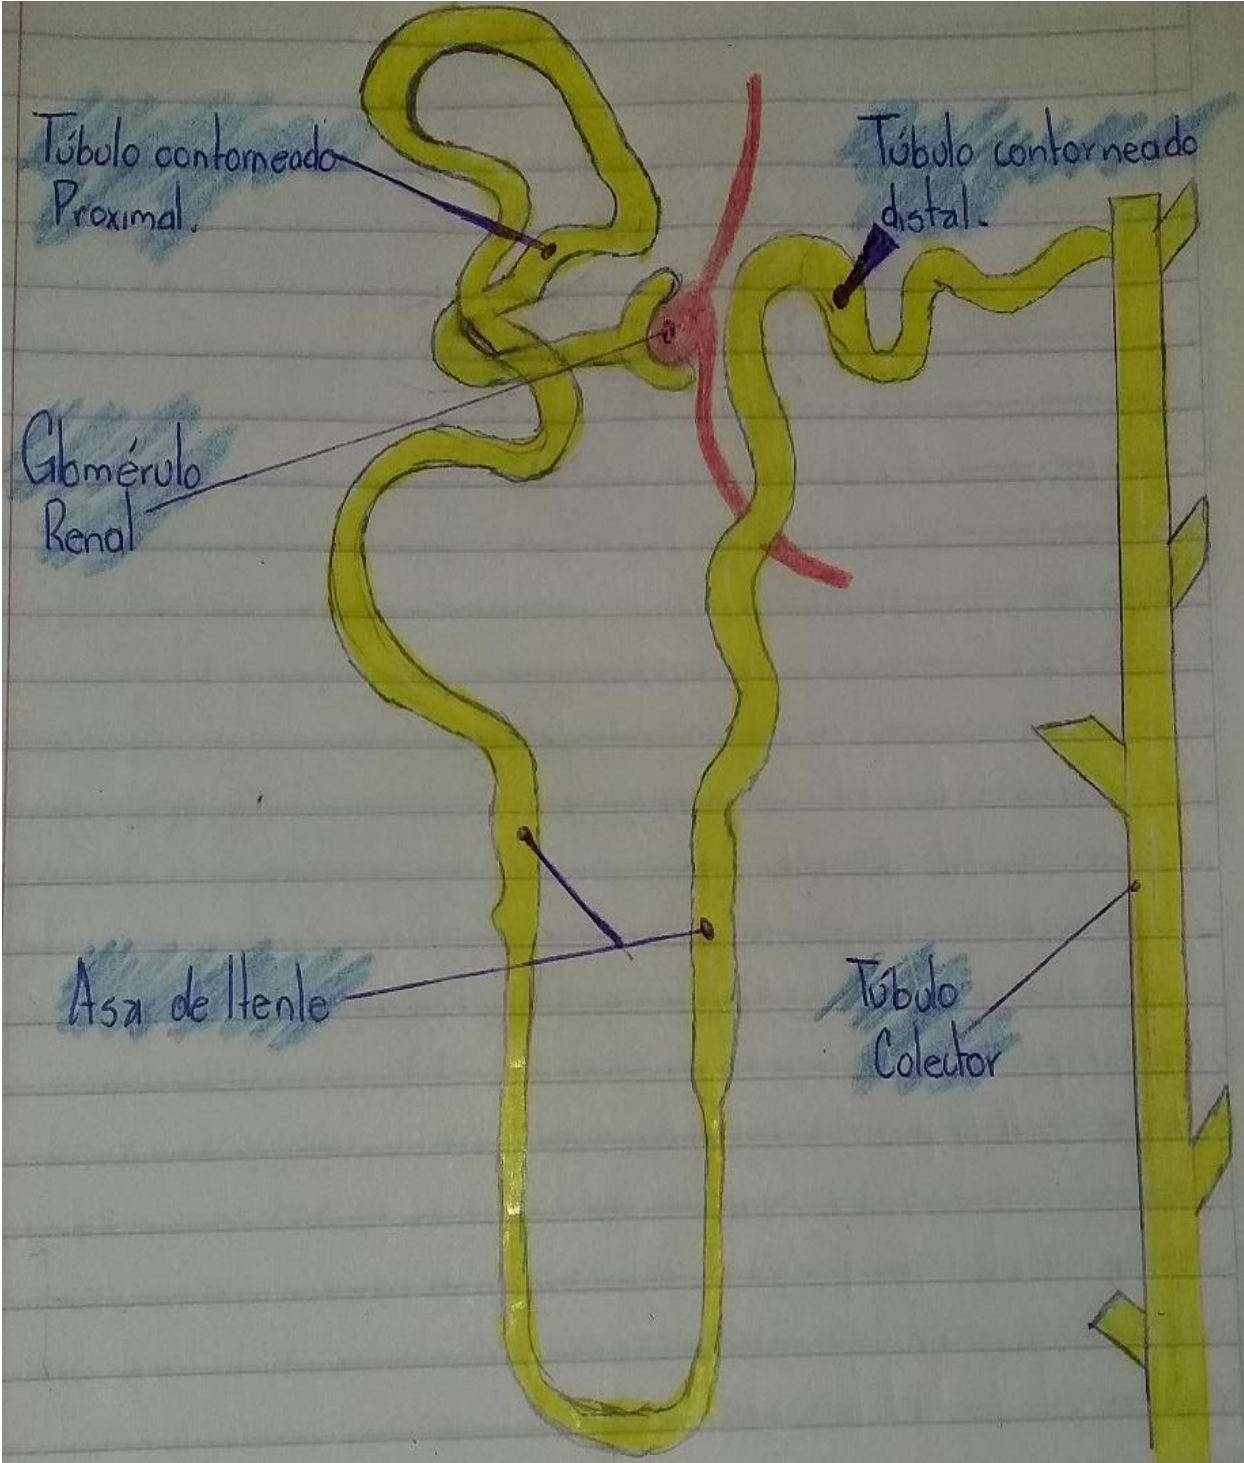 Túbulo contorneado
Proximal.
Túbulo contorneado
distal.
Glomérulo
Renal
Asa de Henle
Túbulo
Colector